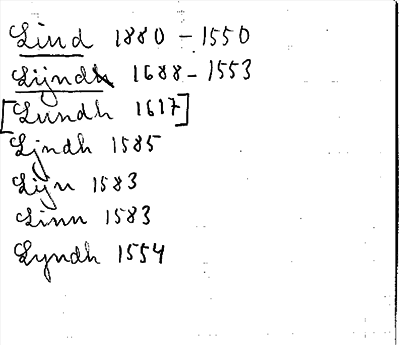 Lind 1880 - 1550
Lijndh 1688 - 1553
[Lundh 1617]
Ljndh 1585
Lijn 1583
Linn 1583
Lyndh 1554